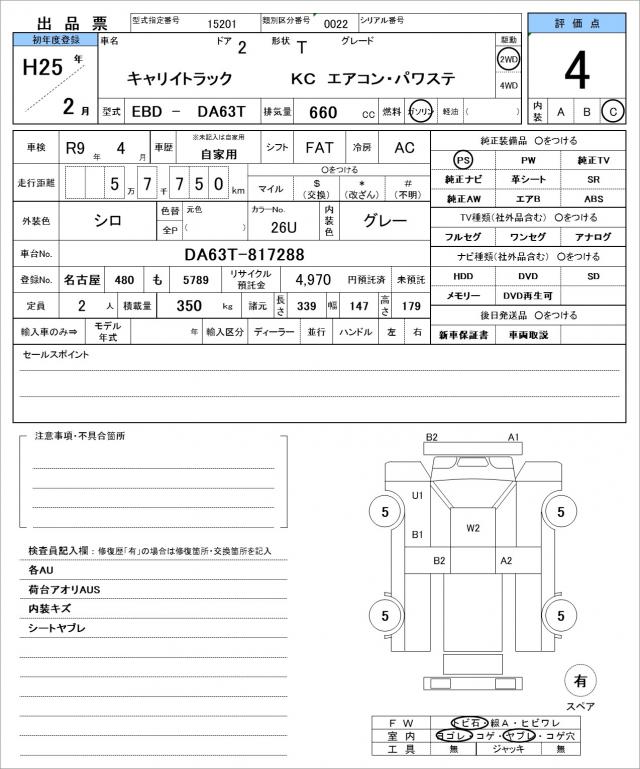 出品票 型式指定番号 15201 類別区分番号 0022 シリアル番号 評価点
初年度登録 車名 ドア 2 形状 T グレード 駆動
H25 年 2WD
キャリイトラック KC エアコン・パワステ 4
4WD
2 月 型式 EBD - DA63T 排気量 660 cc 燃料 ガソリン 軽油 ( ) 内装 A B C
車検 R9 年 4 月 車歴 ※未記入は自家用 自家用 シフト FAT 冷房 AC 純正装備品 〇をつける
PS PW 純正TV
走行距離 5 万 7 千 7 5 0 km マイル 〇をつける $ (交換) * (改ざん) # (不明) 純正ナビ 革シート SR
純正AW エアB ABS
外装色 シロ 色替 元色 全P ( ) カラーNo. 26U 内装色 グレー TV種類(社外品含む) 〇をつける
フルセグ ワンセグ アナログ
車台No. DA63T-817288 ナビ種類(社外品含む) 〇をつける
登録No. 名古屋 480 も 5789 リサイクル預託金 4,970 円預託済 未預託 HDD DVD SD
定員 2 人 積載量 350 kg 諸元 長さ 339 幅 147 高さ 179 メモリー DVD再生可
後日発送品 〇をつける
輸入車のみ⇒ モデル年式 年 輸入区分 ディーラー 並行 ハンドル 左 右 新車保証書 車両取説
セールスポイント
注意事項・不具合箇所
B2 A1
U1
5 5
B1 W2
B2 A2
検査員記入欄：修復歴「有」の場合は修復箇所・交換箇所を記入
各AU
荷台アオリAUS
内装キズ
シートヤブレ
5 5
有
スペア
FW トビ石・線A・ヒビワレ
室内 ヨゴレ・コゲ・ヤブレ・コゲ穴
工具 無 ジャッキ 無